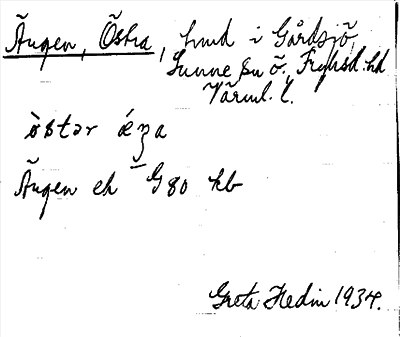 Ängen, Östra, hmd i Gårdsjö,
Sunne sn ö., Fryksd. hd
Värml. l.
òstər ǽŋa
Ängen eh G 80 kb
Greta Hedin 1934.